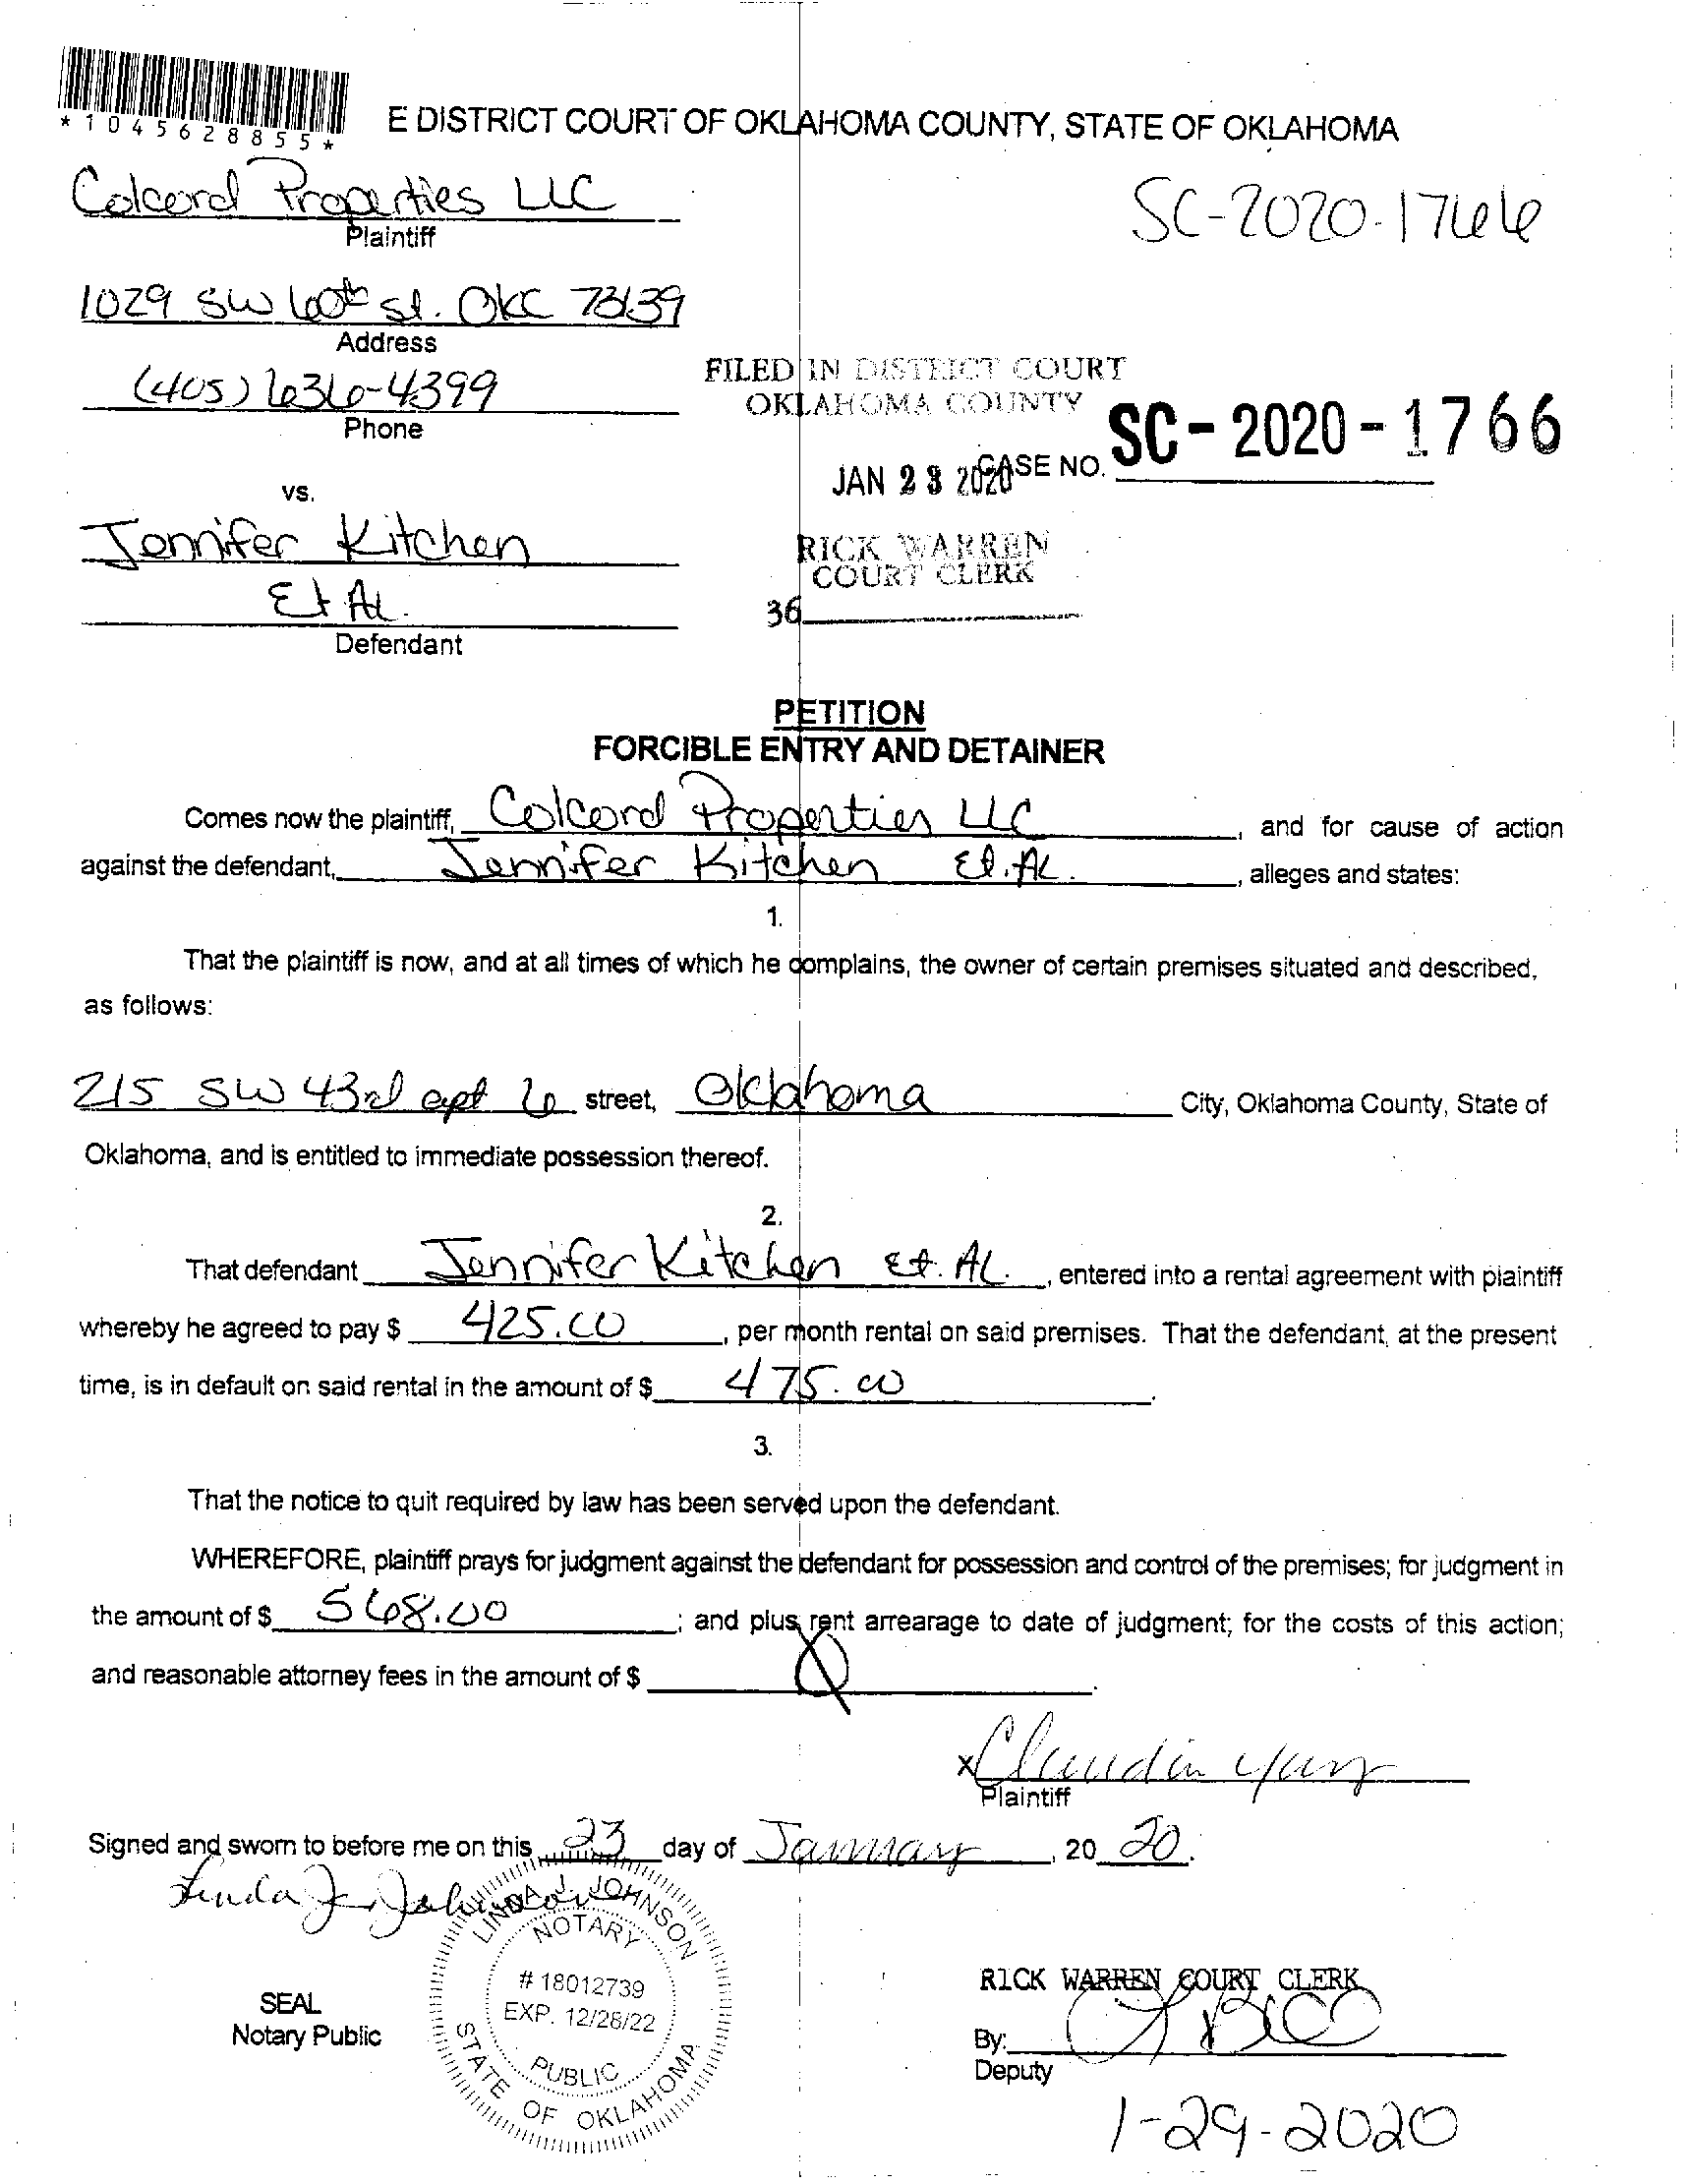 *1045628855*
E DISTRICT COURT OF OKLAHOMA COUNTY, STATE OF OKLAHOMA
Colcord Properties LLC
Plaintiff
SC-2020-1766
1029 SW 60th st. OKC 73139
Address
(405) 636-4399
Phone
FILED IN DISTRICT COURT
OKLAHOMA COUNTY
JAN 23 2020
CASE NO. SC-2020-1766
vs.
Jennifer Kitchen
Et AL.
Defendant
RICK WARREN
COURT CLERK
36
PETITION
FORCIBLE ENTRY AND DETAINER
Comes now the plaintiff, Colcord Properties LLC, and for cause of action
against the defendant, Jennifer Kitchen Et. AL., alleges and states:
1.
That the plaintiff is now, and at all times of which he complains, the owner of certain premises situated and described,
as follows:
215 SW 43rd apt 6 street, Oklahoma City, Oklahoma County, State of
Oklahoma, and is entitled to immediate possession thereof.
2.
That defendant Jennifer Kitchen Et. AL., entered into a rental agreement with plaintiff
whereby he agreed to pay $ 425.00, per month rental on said premises. That the defendant, at the present
time, is in default on said rental in the amount of $ 475.00.
3.
That the notice to quit required by law has been served upon the defendant.
WHEREFORE, plaintiff prays for judgment against the defendant for possession and control of the premises; for judgment in
the amount of $ 568.00; and plus rent arrearage to date of judgment; for the costs of this action;
and reasonable attorney fees in the amount of $
x
Plaintiff
Signed and sworn to before me on this 23 day of January, 2020.
Linda J. Johnson
LINDA J. JOHNSON
NOTARY
# 18012739
EXP. 12/28/22
PUBLIC
STATE OF OKLAHOMA
SEAL
Notary Public
RICK WARREN COURT CLERK
By:
Deputy
1-29-2020